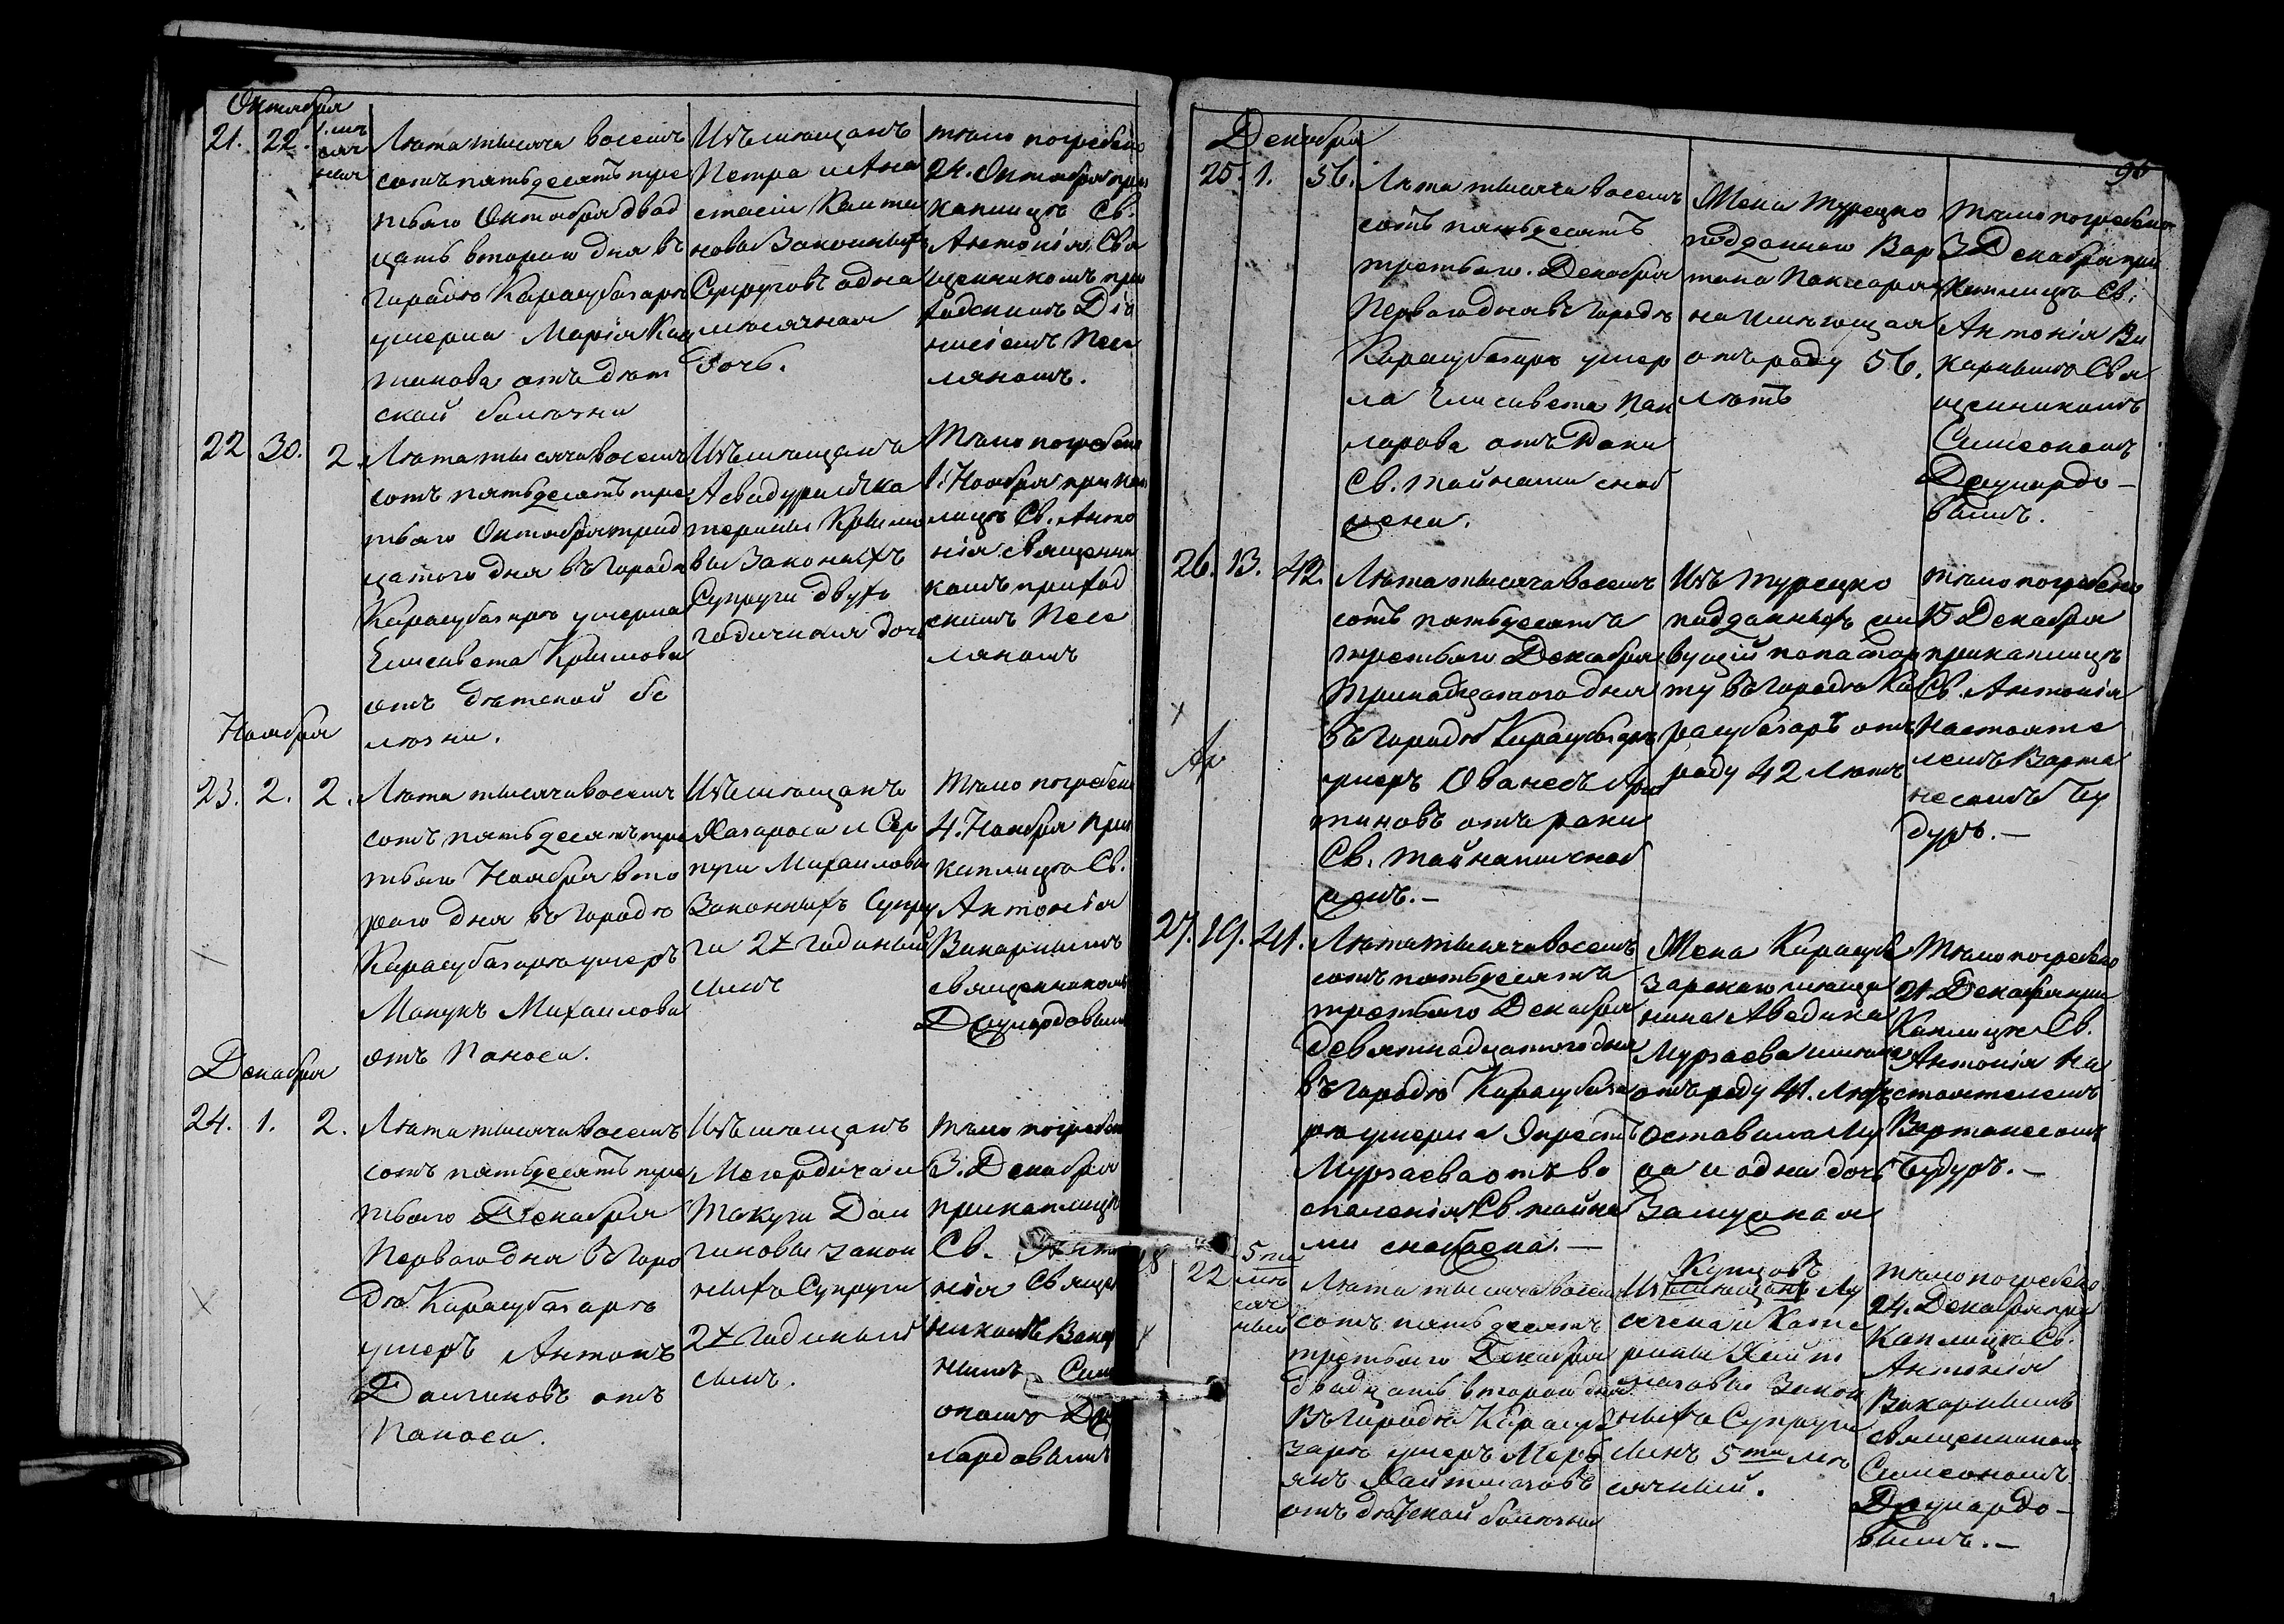 Октября
21. 22. 1. мѣ
сяч
ная
Лѣта тысяча восемь
сотъ пятьдесятъ тре
тьяго Октября двад
цать втораго дня въ
городѣ Карасубазарѣ
умерла Марія Каш
танова отъ дѣт
ской болѣзни
Изъ мѣщанъ
Петра и Ана
стасіи Кашта
новы Законныхъ
Супруговъ одна
мѣсячная
дочь.
тѣло погребено
24. Октября при
каплицѣ Св.
Антонія Свя
щенникомъ при
ходскимъ Діо
нисіемъ
ляномъ.
22 30. 2.
Лѣта тысяча восемь
сотъ пятьдесятъ тре
тьяго Октября трид
цатого дня въ городѣ
Карасубазарѣ умерла
Елисавета Крымова
отъ дѣтской бо
лѣзни.
Изъ мѣщанъ
Асвадура и Ека
терины Крымо
вы Законныхъ
Супруги двухъ
годичная дочь
Тѣло погребено
1. Ноября при кап
лицѣ Св. Анто
нія священни
комъ приход
скимъ
ляномъ
Ноября
23. 2. 2.
Лѣта тысяча восемь
сотъ пятьдесятъ тре
тьяго Ноября вто
раго дня въ городѣ
Карасубазарѣ умеръ
Манукъ Михаилова
отъ Поноса.
Изъ мѣщанъ
Хазароса и Сер
пуги Михаиловы
Законныхъ Супру
ги 2х годиный
сынъ
Тѣло погребено
4. Ноября при
каплицѣ Св.
Антонія
Викарнымъ
священникомъ
Декабря
24. 1. 2.
Лѣта тысяча восемь
сотъ пятьдесятъ тре
тьяго Декабря
Перваго дня въ горо
дѣ Карасубазарѣ
умеръ Антонъ
Долгиновъ отъ
Поноса.
Изъ мѣщанъ
Мегердича и
Такуги Дол
гиновы закон
ныхъ Супруги
2х годиный
сынъ.
тѣло погребено
3. Декабря
при каплицѣ
Св. Анто
нія Священ
никомъ Викар
нымъ Сим
ономъ
лардовымъ
96
Декабря
25. 1. 56.
Лѣта тысяча восемь
сотъ пятьдесятъ
третьяго. Декабря
Перваго дня въ городѣ
Карасубазарѣ умер
ла Елисавета Пак
ларова отъ
Св. тайнами снаб
жена.
Жена турецко
подданнаго Вар
тана Пакларо
на имѣющая
отъ роду 56.
лѣтъ
Тѣло погребено
3 Декабря при
Каплицѣ Св.
Антонія Ви
карнымъ Свя
щенникомъ
Симеономъ
вымъ.
26. 13. 42.
Лѣта тысяча восемь
сотъ пятьдесятъ
третьяго Декабря
тринадцатого дня
въ городѣ Карасубазарѣ
умеръ Ованесъ
тиновъ отъ раны
Св. тайнами снаб
женъ.—
Изъ турецко
подданныхъ
вущій по
ту въ городѣ Ка
расубазарѣ отъ
роду 42 лѣтъ
тѣло погребено
15 Декабря
при каплицѣ
Св. Антонія
Настояте
лемъ Варта
несомъ Бу
дуръ.—
27. 19. 41.
Лѣта тысяча восемь
сотъ пятьдесятъ
третьяго Декабря
девятнадцатого дня
въ городѣ Карасубаза
рѣ умерла
Мурзаева отъ во
спаленія Св тайна
ми снабжена.—
Жена Карасуба
зарскаго мѣща
нина Аведика
Мурзаева имѣю
отъ роду 41. лѣтъ
Оставила Му
жа и одна дочь
Замужная
Тѣло погребено
21. Декабря при
Каплицѣ Св.
Антонія На
стоятелемъ
Вартанесомъ
Будуръ.—
28 22 5ти
мѣ
сяч
ный
Лѣта тысяча восемь
сотъ пятьдесятъ
третьяго Декабря
двадцать второго дня
Въ городѣ Карасуба
зарѣ умеръ
янъ
отъ дѣтской болѣзни
Купцовъ
Изъ мѣщанъ Лу
сегена и Кате
рины
Закон
ныхъ Супруги
сынъ 5ти мѣ
сячный.
тѣло погребено
24. Декабря при
Каплицѣ Св.
Антонія
Викарнымъ
священником
Симеономъ
вымъ.—